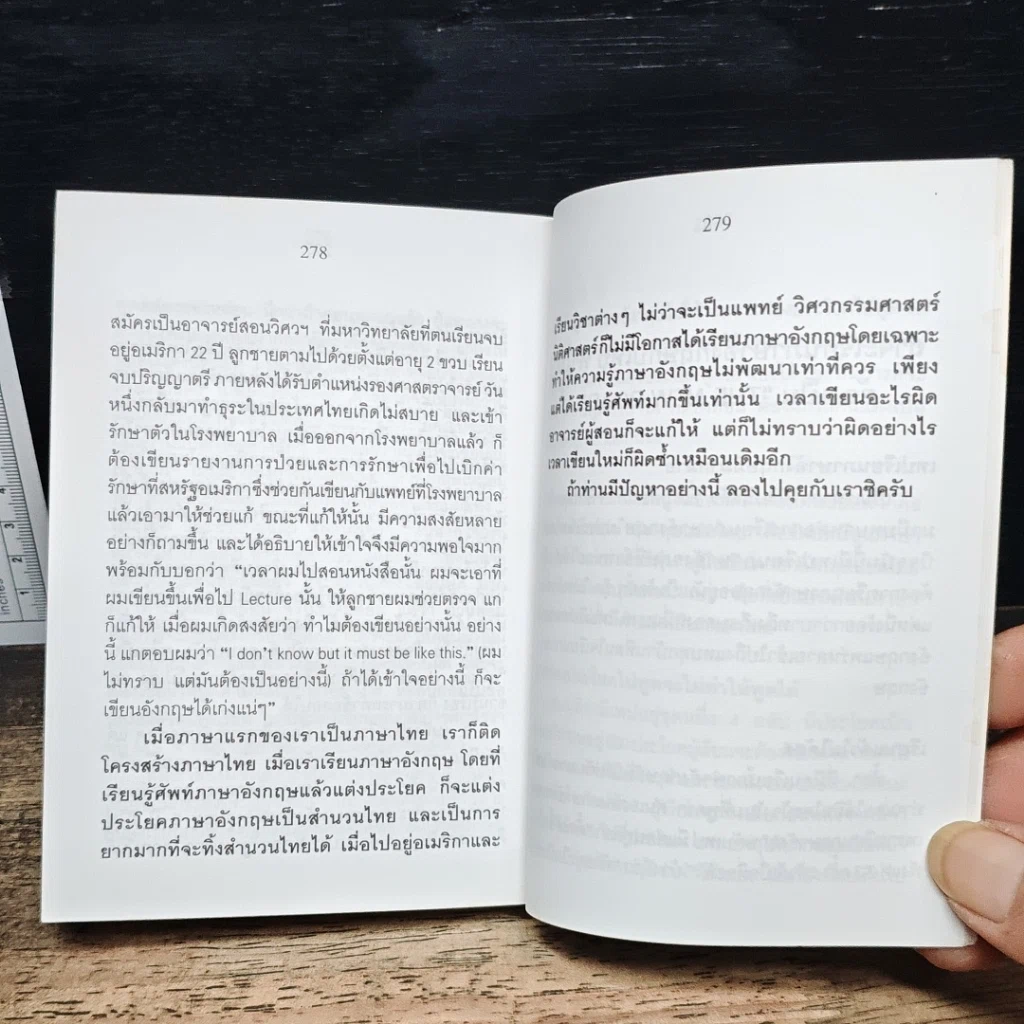 278
สมัครเป็นอาจารย์สอนวิศวฯ ที่มหาวิทยาลัยที่ตนเรียนจบ
อยู่อเมริกา 22 ปี ลูกชายตามไปด้วยตั้งแต่อายุ 2 ขวบ เรียน
จบปริญญาตรี ภายหลังได้รับตำแหน่งรองศาสตราจารย์ วัน
หนึ่งกลับมาทำธุระในประเทศไทยเกิดไม่สบาย และเข้า
รักษาตัวในโรงพยาบาล เมื่อออกจากโรงพยาบาลแล้ว ก็
ต้องเขียนรายงานการป่วยและการรักษาเพื่อไปเบิกค่า
รักษาที่สหรัฐอเมริกาซึ่งช่วยกันเขียนกับแพทย์ที่โรงพยาบาล
แล้วเอามาให้ช่วยแก้ ขณะที่แก้ให้นั้น มีความสงสัยหลาย
อย่างก็ถามขึ้น และได้อธิบายให้เข้าใจจึงมีความพอใจมาก
พร้อมกับบอกว่า “เวลาผมไปสอนหนังสือนั้น ผมจะเอาที่
ผมเขียนขึ้นเพื่อไป Lecture นั้น ให้ลูกชายผมช่วยตรวจ แก
ก็แก้ให้ เมื่อผมเกิดสงสัยว่า ทำไมต้องเขียนอย่างนั้น อย่าง
นี้ แกตอบผมว่า “I don’t know but it must be like this.” (ผม
ไม่ทราบ แต่มันต้องเป็นอย่างนี้) ถ้าได้เข้าใจอย่างนี้ ก็จะ
เขียนอังกฤษได้เก่งแน่ๆ”
เมื่อภาษาแรกของเราเป็นภาษาไทย เราก็ติด
โครงสร้างภาษาไทย เมื่อเราเรียนภาษาอังกฤษ โดยที่
เรียนรู้ศัพท์ภาษาอังกฤษแล้วแต่งประโยค ก็จะแต่ง
ประโยคภาษาอังกฤษเป็นสำนวนไทย และเป็นการ
ยากมากที่จะทิ้งสำนวนไทยได้ เมื่อไปอยู่อเมริกาและ
279
เรียนวิชาต่างๆ ไม่ว่าจะเป็นแพทย์ วิศวกรรมศาสตร์
นิติศาสตร์ก็ไม่มีโอกาสได้เรียนภาษาอังกฤษโดยเฉพาะ
ทำให้ความรู้ภาษาอังกฤษไม่พัฒนาเท่าที่ควร เพียง
แต่ได้เรียนรู้ศัพท์มากขึ้นเท่านั้น เวลาเขียนอะไรผิด
อาจารย์ผู้สอนก็จะแก้ให้ แต่ก็ไม่ทราบว่าผิดอย่างไร
เวลาเขียนใหม่ก็ผิดซ้ำเหมือนเดิมอีก
ถ้าท่านมีปัญหาอย่างนี้ ลองไปคุยกับเราซิครับ